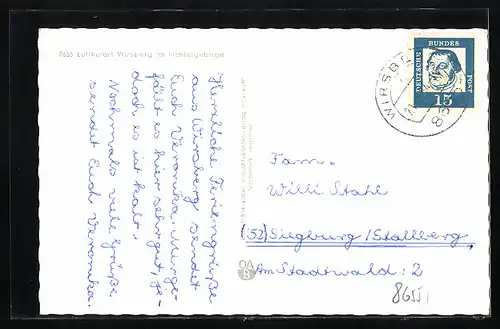 8655 Luftkurort Wirsberg im Fichtelgebirge
Herzliche Feriengrüße
aus Wirsberg sendet
Euch Veronika. Mir ge-
fällt es hier sehr gut, je-
doch es ist kalt.
Nochmals viele Grüße
sendet Euch Veronika.
WIRSB
DEUTSCHE BUNDES POST
15
Fam.
Willi Stahl
(52) Siegburg/Stallberg
Am Stadtwald: 2
8655